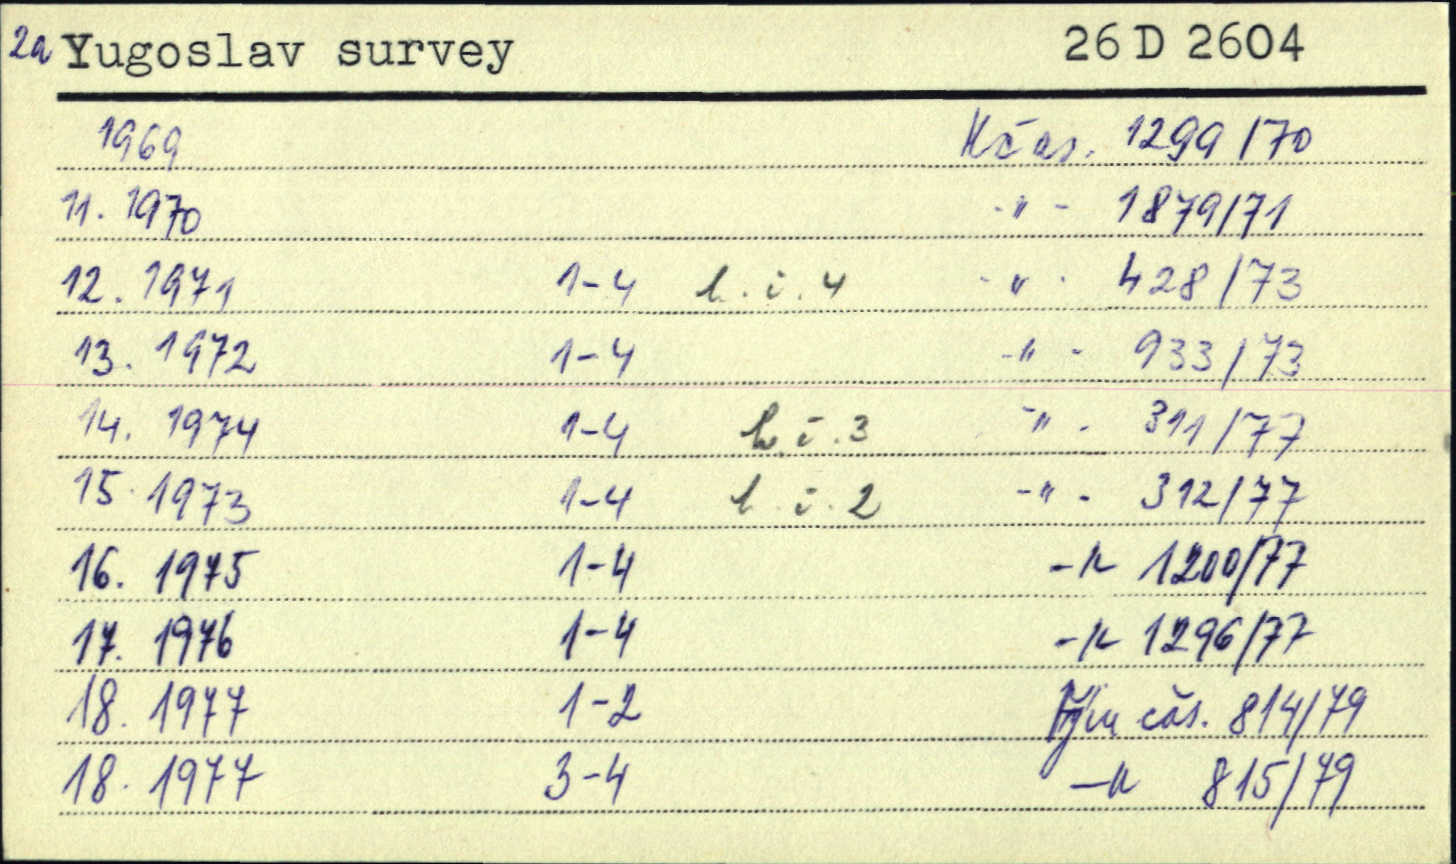 2a Yugoslav survey 26 D 2604
1969 Kčas. 1299/70
11. 1970 -"- 1879/71
12. 1971 1-4 b.č.4 -"- 428/73
13. 1972 1-4 -"- 933/73
14. 1974 1-4 b.č.3 -"- 311/77
15. 1973 1-4 b.č.2 -"- 312/77
16. 1975 1-4 -"- 1200/77
17. 1976 1-4 -"- 1296/77
18. 1977 1-2 čas. 814/79
18. 1977 3-4 -"- 815/79